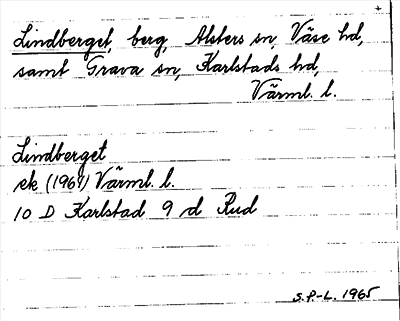 Lindberget, berg, Alsters sn, Väse hd,
samt Grava sn, Karlstads hd,
Värml. l.
Lindberget
ek (1961) Värml. l.
10 D Karlstad 9 d Rud
S.P-L. 1965